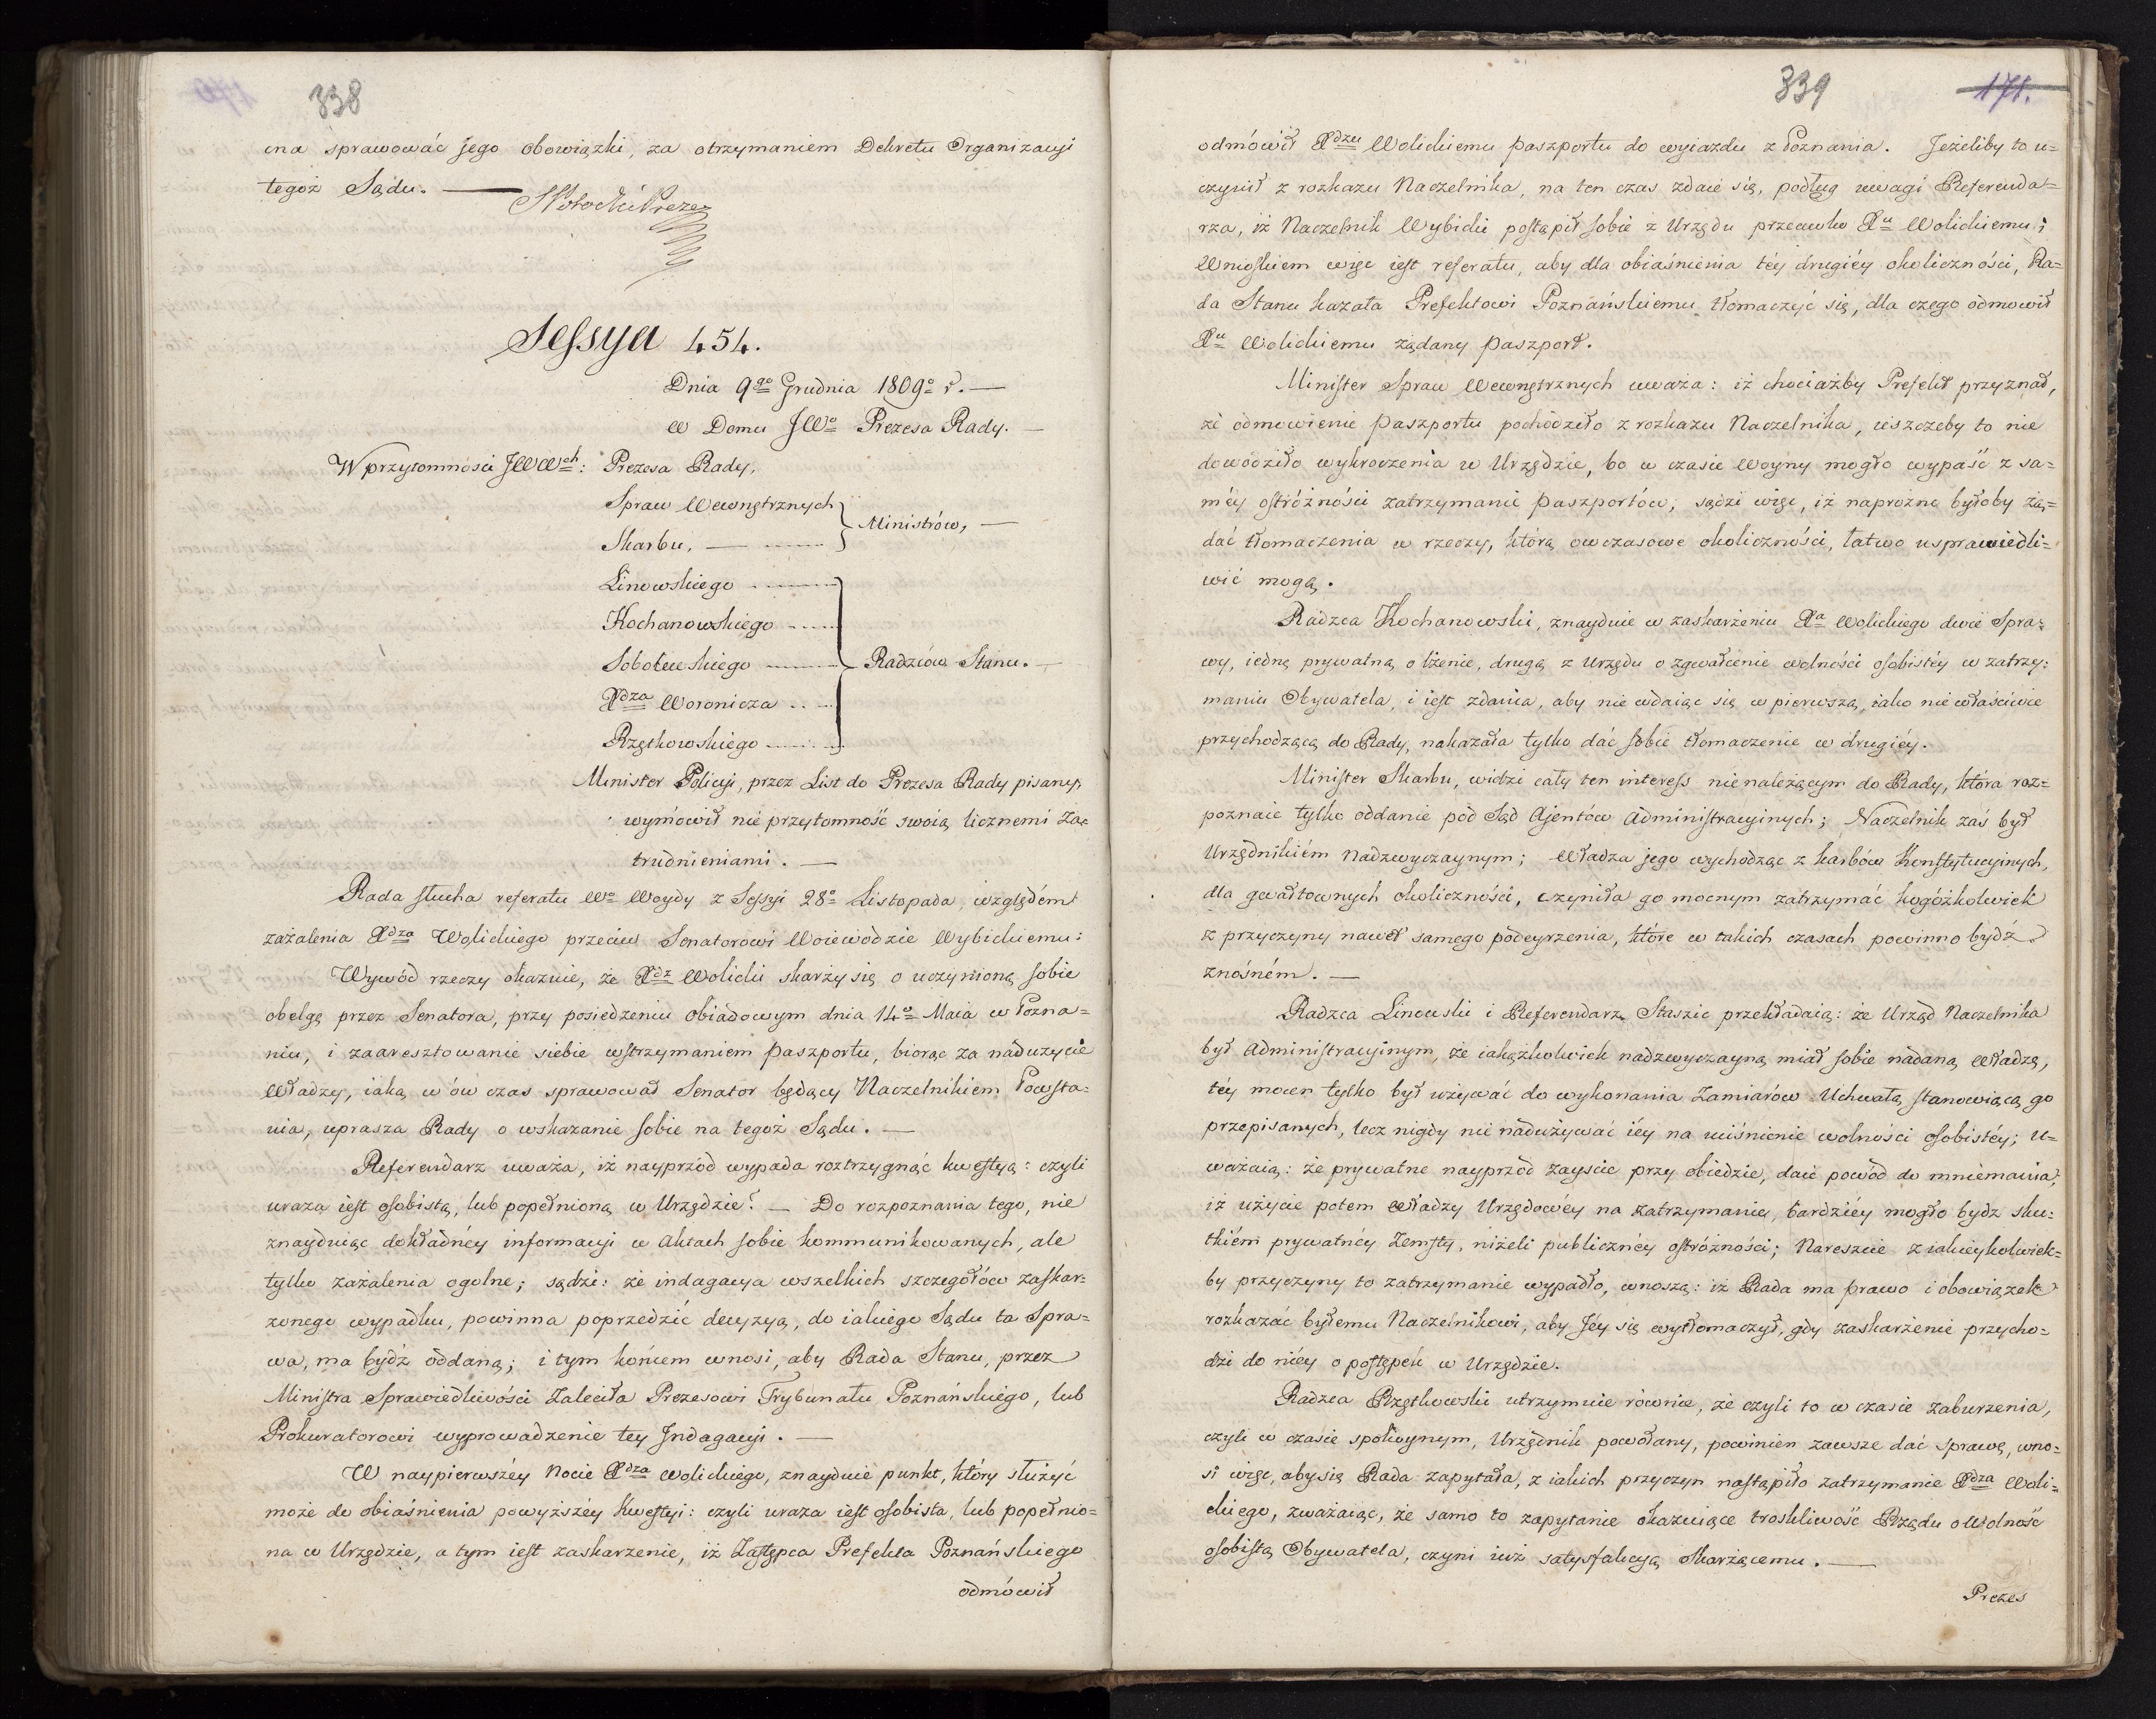 338
ma sprawować jego obowiązki, za otrzymaniem Dekretu Organizacyi
tegoż Sądu. —
Sessya 454.
Dnia 9go Grudnia 1809o r. —
w Domu JWo Prezesa Rady. —
W przytomności JWWch: Prezesa Rady,
Spraw Wewnętrznych
Skarbu, — Ministrów, —
Linowskiego
Kochanowskiego
Sobolewskiego — Radzców Stanu. —
Xdza Woronicza
Rzętkowskiego
Minister Policyi, przez List do Prezesa Rady pisany,
wymówił nie przytomność swoią licznemi za=
trudnieniami. —
Rada słucha referatu Wo Woydy z Sessyi 28o Listopada, względem
zażalenia Xdza Wolickiego przeciw Senatorowi Woiewodzie Wybickiemu:
Wywód rzeczy okazuie, że Xdz Wolicki skarży się o uczynioną sobie
obelgę przez Senatora, przy posiedzeniu obiadowym dnia 14o Maia w Pozna=
niu, i zaaresztowanie siebie wstrzymaniem paszportu, biorąc za nadużycie
Władzy, iaką w ów czas sprawował Senator będący Naczelnikiem Powsta=
nia, uprasza Rady o wskazanie sobie na tegoż Sądu. —
Referendarz uważa, iż nayprzód wypada roztrzygnąć kwestyą: czyli
uraza iest osobistą, lub popełnioną w Urzędzie? — Do rozpoznania tego, nie
znayduiąc dokładnéy informacyi w Aktach sobie kommunikowanych, ale
tylko zażalenia ogolne; sądzi: że indagacya wszelkich szczegółów zaskar=
żonego wypadku, powinna poprzedzić decyzyą, do iakiego Sądu ta Spra=
wa, ma bydź oddaną; i tym końcem wnosi, aby Rada Stanu, przez
Ministra Sprawiedliwości zaleciła Prezesowi Trybunału Poznańskiego, lub
Prokuratorowi wyprowadzenie tey Indagacyi. —
W naypierwszéy Nocie Xdza Wolickiego, znayduie punkt, który służyć
może do obiaśnienia powyższéy kwestyi: czyli uraza iest osobista, lub popełnio=
na w Urzędzie, a tym iest zaskarzenie, iż Zastępca Prefekta Poznańskiego
odmówił
339
171.
odmówił Xdzu Wolickiemu paszportu do wyiazdu z Poznania. Jeżeliby to u=
czynił z rozkazu Naczelnika, na ten czas zdaie się, podług uwagi Referenda=
rza, iż Naczelnik Wybicki postąpił sobie z Urzędu przeciwko Xu Wolickiemu;
Wnioskiem więc iest referatu, aby dla obiaśnienia téy drugiéy okoliczności, Ra=
da Stanu kazała Prefektowi Poznańskiemu tłomaczyć się, dla czego odmowił
Xu Wolickiemu żądany paszport.
Minister Spraw Wewnętrznych uważa: iż chociażby Prefekt przyznał,
że odmowienie paszportu pochodziło z rozkazu Naczelnika, ieszczeby to nie
dowodziło wykroczenia w Urzędzie, bo w czasie Woyny mogło wypaść z sa=
méy ostróżności zatrzymanie paszportów; sądzi więc, iż naprożno byłoby żą=
dać tłomaczenia w rzeczy, którą owczasowe okoliczności, łatwo usprawiedli=
wić mogą.
Radzca Kochanowski, znayduie w zaskarżeniu Xa Wolickiego dwie Spra=
wy, iedną prywatną o lżenie, drugą z Urzędu o zgwałcenie wolności osobistéy w zatrzy=
maniu Obywatela, i iest zdania, aby nie wdaiąc się w pierwszą, iako nie właściwie
przychodzącą do Rady, nakazała tylko dać sobie tłomaczenie w drugiéy.
Minister Skarbu, widzi cały ten interess nienależącym do Rady, która roz=
poznaie tylko oddanie pod Sąd Ajentów Administracyinych; Naczelnik zaś był
Urzędnikiém Nadzwyczaynym; Władza jego wychodząc z karbów Konstytucyinych,
dla gwałtownych okoliczności, czyniła go mocnym zatrzymać kogóżkolwiek
z przyczyny nawet samego podeyrzenia, które w takich czasach powinno bydź
znośném. —
Radzca Linowski i Referendarz Staszic przekładaią: że Urząd Naczelnika
był Administracyinym, że iakążkolwiek nadzwyczayną miał sobie nadaną Władzę,
téy mocen tylko był używać do wykonania Zamiarów Uchwałą stanowiącą go
przepisanych, lecz nigdy nie nadużywać iéy na uciśnienie wolności osobistéy; u=
ważaią: że prywatne nayprzód zayscie przy obiedzie, daie powód do mniemania,
iż użycie potem Władzy Urzędowéy na zatrzymanie, bardziéy mogło bydz sku=
tkiém prywatnéy Zemsty, niżeli publicznéy ostróżności; Nareszcie z iakieykolwiek=
by przyczyny to zatrzymanie wypadło, wnoszą: iż Rada ma prawo i obowiązek
rozkazać byłemu Naczelnikowi, aby Jéy się wytłomaczył, gdy zaskarżenie przycho=
dzi do niéy o postępek w Urzędzie.
Radzca Rzętkowski utrzymuie równie, że czyli to w czasie zaburzenia,
czyli w czasie spokoynym, Urzędnik powołany, powinien zawsze dać sprawę, wno=
si więc, aby się Rada zapytała, z iakich przyczyn nastąpiło zatrzymanie Xdza Woli=
ckiego, zważaiąc, że samo to zapytanie okazuiące troskliwość Rządu o Wolność
osobistą Obywatela, czyni iuż satysfakcyą skarżącemu. —
Prezes